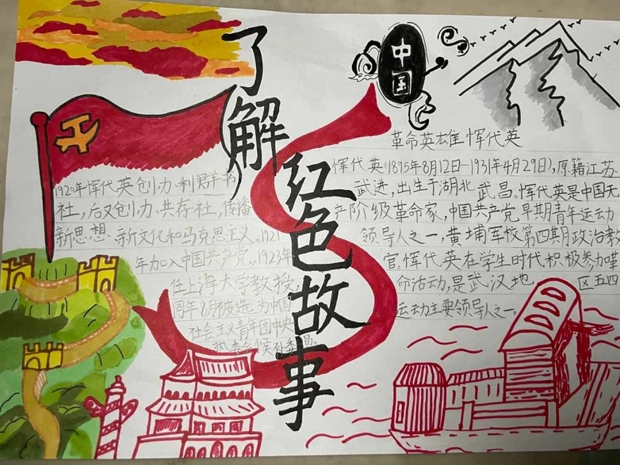 了解红色故事
中国
革命英雄恽代英
恽代英(1895年8月12日-1931年4月29日),原籍江苏
武进,出生于湖北武昌,恽代英是中国无
产阶级革命家,中国共产党早期青年运动
领导人之一,黄埔军校第四期政治教
官,恽代英在学生时代积极参加革
命活动,是武汉地区五四
运动主要领导人之一。
1920年恽代英创办利群书
社,后又创办共存社,传播
新思想、新文化和马克思主义,1921
年加入中国共产党,1923年
任上海大学教授,
同年8月被选为中国
社会主义青年团中央